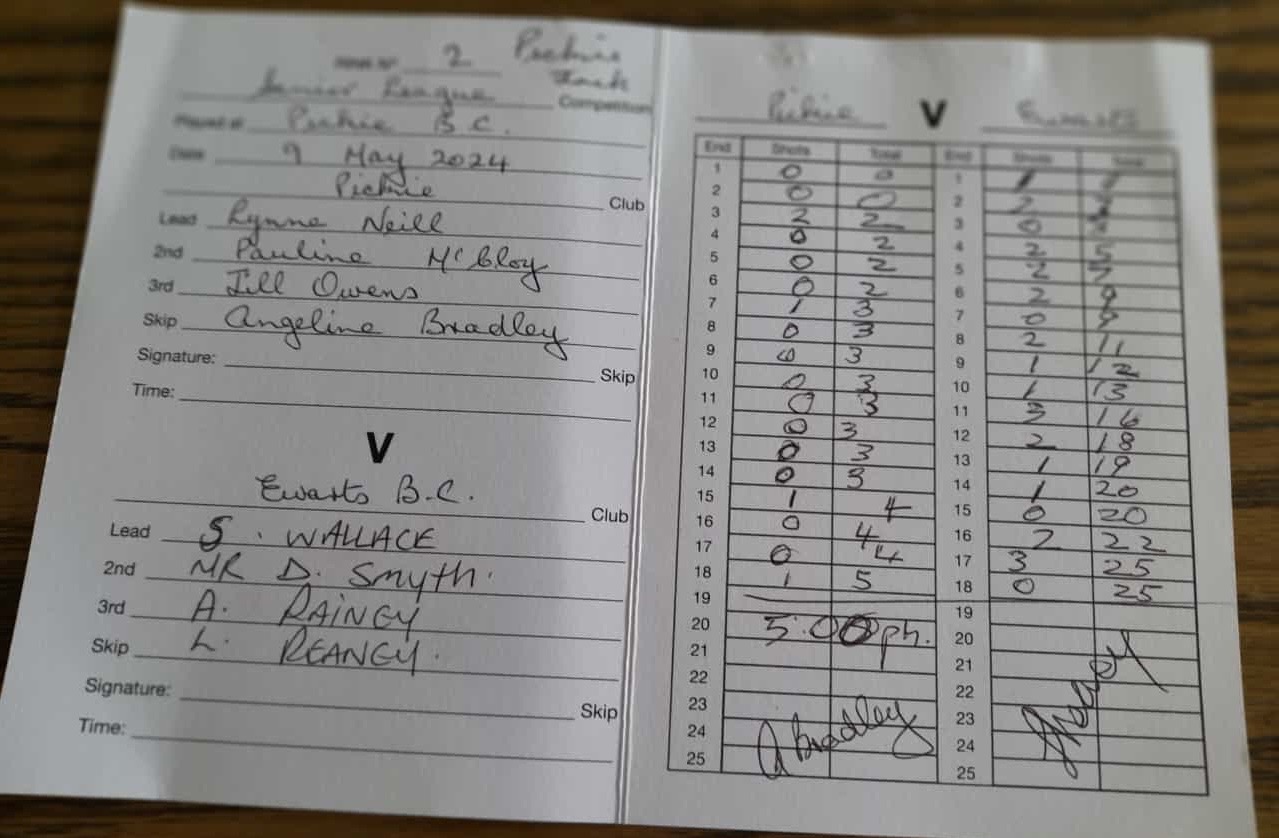 Rink Nº 2 Pickie
Senior League Competition
Played at Pickie B.C.
Date 9 May 2024
Pickie Club
Lead Lynne Neill
2nd Pauline McCloy
3rd Jill Owens
Skip Angeline Bradley
Signature: Skip
Time:
V
Ewarts B.C. Club
Lead S. WALLACE
2nd MR D. Smyth.
3rd A. RAINEY
Skip L. REANEY.
Signature: Skip
Time:
Pickie V Ewarts
End Shots Total End Shots Total
1 0 0 1 1 1
2 0 0 2 2 3
3 2 2 3 0 3
4 0 2 4 2 5
5 0 2 5 2 7
6 0 2 6 2 9
7 1 3 7 0 9
8 0 3 8 2 11
9 0 3 9 1 12
10 0 3 10 1 13
11 0 3 11 3 16
12 0 3 12 2 18
13 0 3 13 1 19
14 0 3 14 1 20
15 1 4 15 0 20
16 0 4 16 2 22
17 0 4 17 3 25
18 1 5 18 0 25
19 19
20 5.00 pm. 20
21 21
22 22
23 23
24 A Bradley 24
25 25